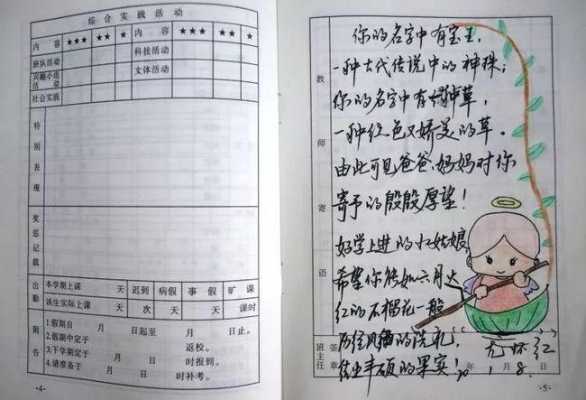 综合实践活动
内 容 ★★★ ★★ ★ 内 容 ★★★ ★★ ★
班队活动 科技活动
兴趣小组活动 文体活动
社会实践
特别表现
奖惩记载
出勤
本学期上课 天 迟到 病假 事假 旷课
该生实际上课 天 次 天 天 课时
附告
1.假期自 月 日起至 月 日止。
2.假期中定于 返校。
3.下学期定于 月 日 时报到。
4.请准备于 月 日 时补考。
-4-
教师寄语
你的名字中有宝玉,
一种古代传说中的神珠;
你的名字中有 草,
一种红色又娇美的草。
由此可见爸爸、妈妈对你
寄予的殷殷厚望!
好学上进的小姑娘,
希望你能如六月火
红的石榴花一般
历经风 的洗礼,
结出丰硕的果实!
班主任 签章 尤怀红
年 月 日
1.8.
-5-